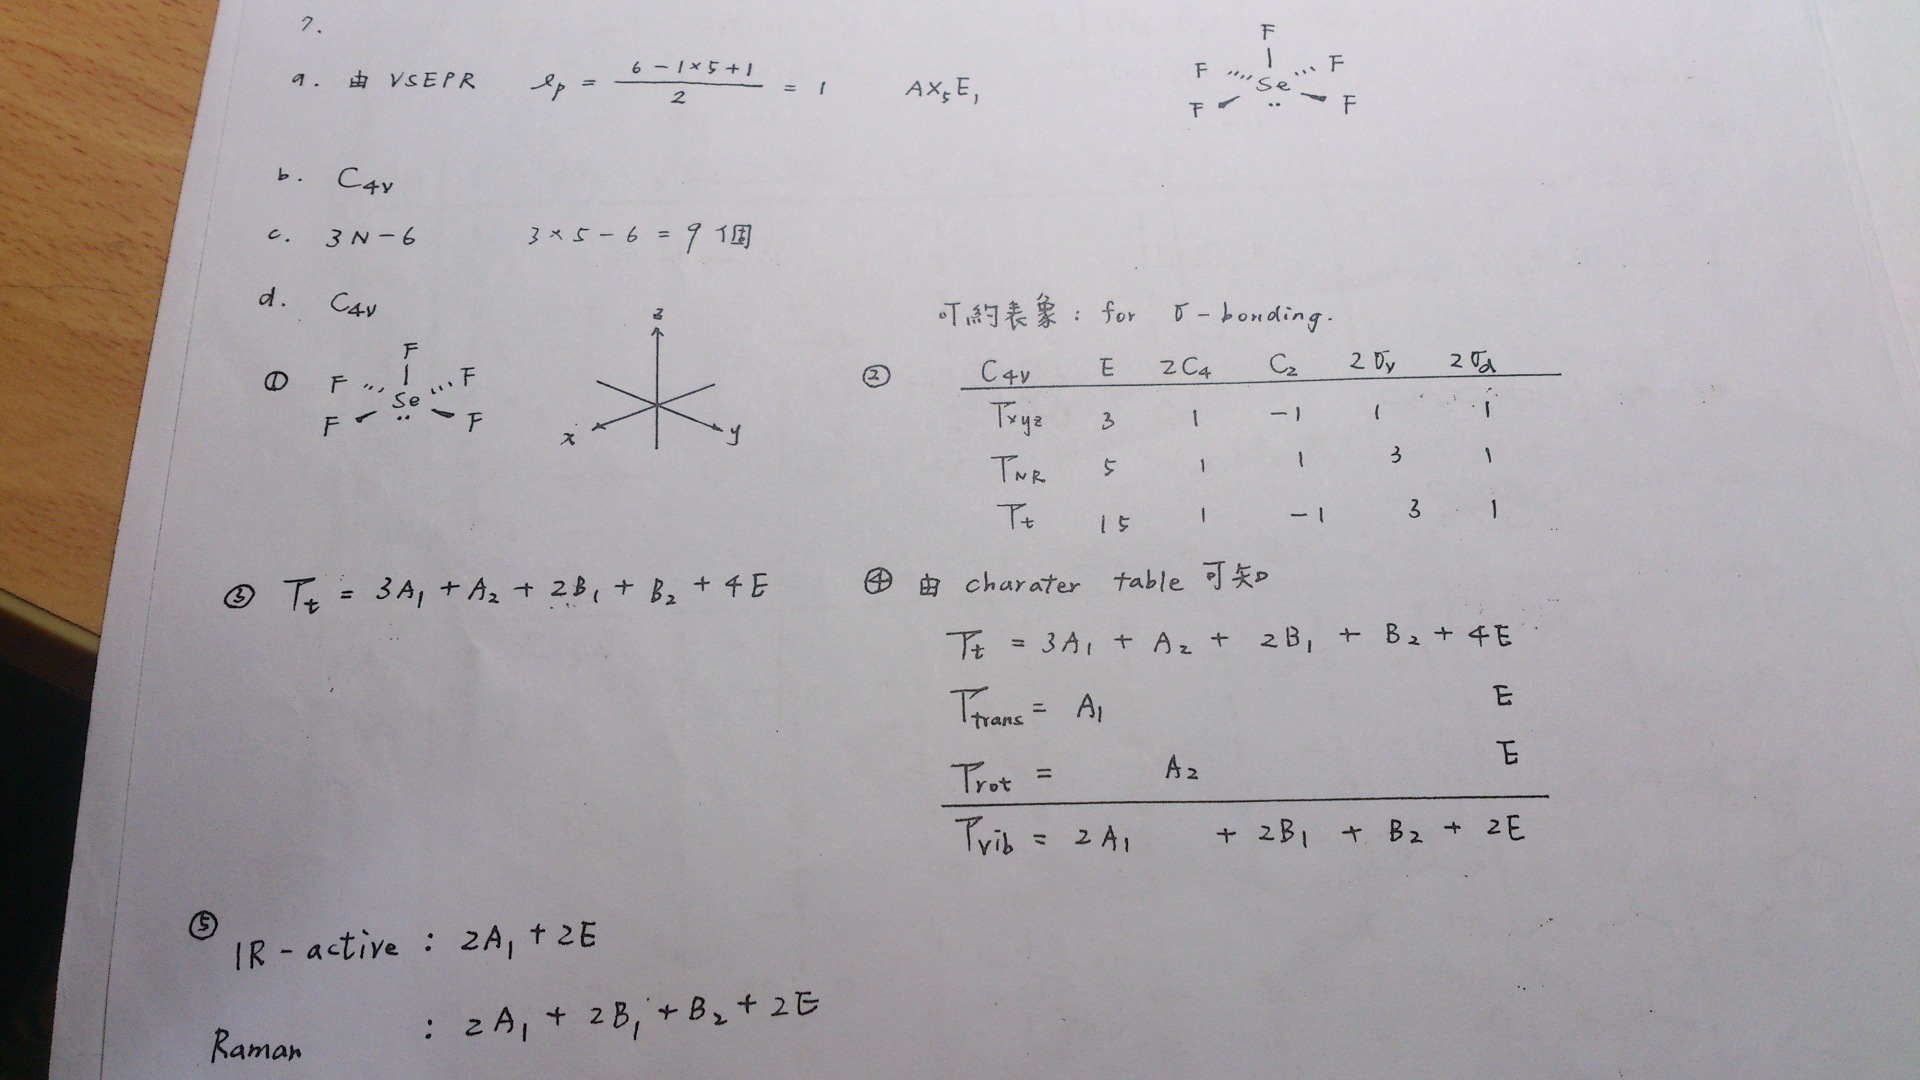 7.
a. 由 VSEPR lp = (6 - 1×5 + 1) / 2 = 1 AX₅E₁
F
F Se F
F F
b. C₄ᵥ
c. 3N - 6 3×5 - 6 = 9 個
d. C₄ᵥ
① F
F Se F
F F
z
x y
可約表象: for σ - bonding.
② C₄ᵥ E 2C₄ C₂ 2σᵥ 2σd
Txyz 3 1 -1 1 1
TNR 5 1 1 3 1
Tt 15 1 -1 3 1
③ Tt = 3A₁ + A₂ + 2B₁ + B₂ + 4E
④ 由 charater table 可知
Tt = 3A₁ + A₂ + 2B₁ + B₂ + 4E
Ttrans = A₁ E
Trot = A₂ E
Tvib = 2A₁ + 2B₁ + B₂ + 2E
⑤
IR - active : 2A₁ + 2E
Raman : 2A₁ + 2B₁ + B₂ + 2E